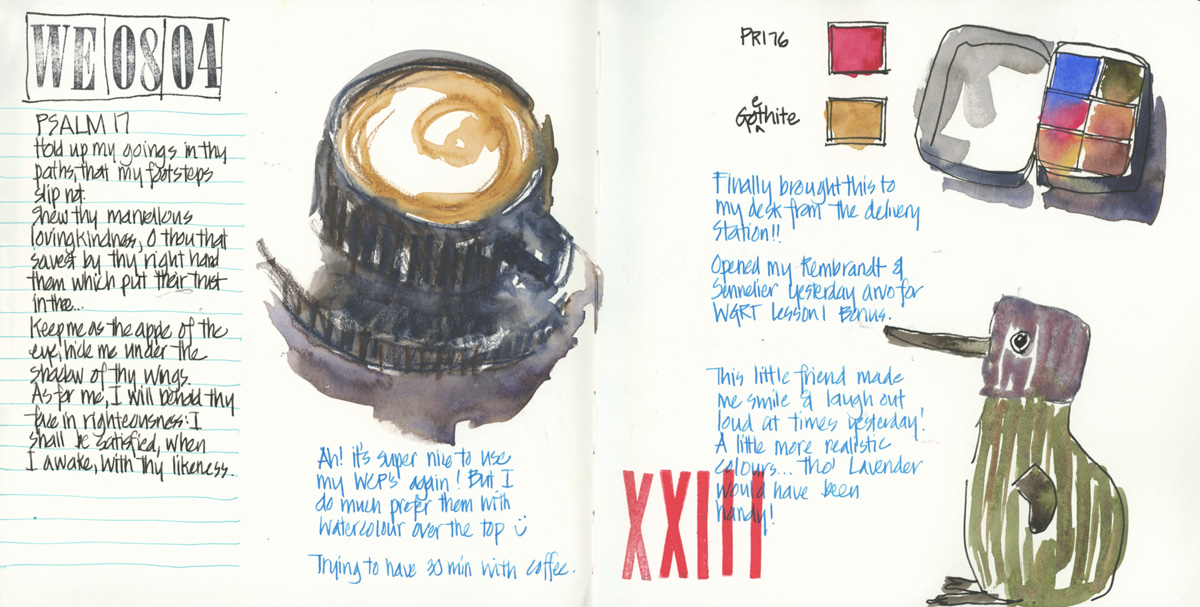 WE 08 04
PSALM 17
Hold up my goings in thy
paths, that my footsteps
slip not.
Shew thy marvellous
lovingkindness, O thou that
savest by thy right hand
them which put their trust
in thee...
Keep me as the apple of the
eye, hide me under the
shadow of thy wings.
As for me, I will behold thy
face in righteousness: I
shall be satisfied, when
I awake, with thy likeness.
Ah! it's super nice to use
my WCP's again! But I
do much prefer them with
watercolour over the top
Trying to have 30 min with coffee.
PR176
Goethite
Finally brought this to
my desk from the delivery
station!!
Opened my Rembrandt &
Sennelier yesterday arvo for
W&RT Lesson 1 Bonus.
This little friend made
me smile & laugh out
loud at times yesterday!
A little more realistic
colours... tho' Lavender
would have been
handy!
XXIII